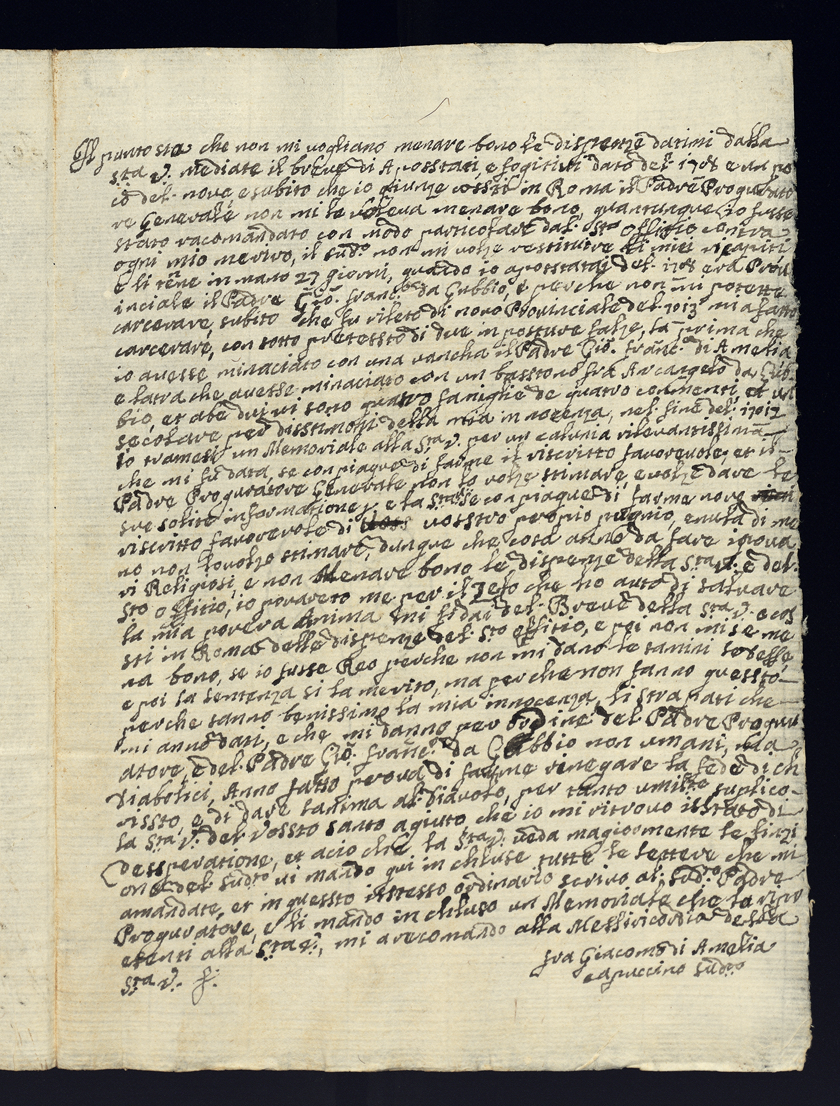 Il punto sta che non mi vogliano menare bono le dispenze datimi dalla
S.ta V. mediate il breve di Apostati, e fogitivi dato del 1708 e un po
cõ del nove, e subito che io giunze cossti in Roma il Padre Procurato
re Generale non mi le voleva menare bono, quantunque io fusse
stato racomandato con modo particolare dal S.to offitio contra
ogni mio merivo, il sud.o non mi volze restituire li miei ricapiti
e li tẽne in mano 27 giorni, quando io apostatai del 1708 era Prov
inciale il Padre Gio. franc.o da Gubbio, e perche non mi potette
carcerare, subito che fu rileto di novo Provinciale del 1713 mi a fatto
carcerare, con sotto pretessto di due in posture falze, la prima che
io avesse minaciato con una rancha il Padre Gio. franc.o di Amelia
e latra che avesse minaciato con un basstono fra Arcangelo da Gub
bio, et abe dui vi sono quatro famiglie de quatro conventi, et un
secolare per disstimoni della mia innocenza, nel fine del 1712
Io tramesi un Memoriale alla S.ta V. per un calunia rilevantissima
che mi fu data, se conpiaque di farme il riscritto favorevole, et il
Padre Procuratore Generale non lo volze stimare, e volze dare le
sue solite informatione, e la S.ta V. se conpiaque di farme novo
riscritto favorevole di vosstro proprio pugnio, e nulla di me
no non lo volze stimare, dunque che cosa anno da fare i pova
ri Religiosi, e non Menare bono le dispenze della S.ta V. e del
S.to offitio, io povareto me per il Zelo che ho auto di salvare
la mia povera Anima mi fidai del Breve della S.ta V. e cos
sti in Roma delle dispenze del S.to offitio, e poi non mi se me
na bono, se io fusse Reo perche non mi dano le tamini
e poi la sentenza si la merito, ma perche non fanno quessto
perche sanno benissimo la mia innocenza, li strapati che
mi anno dati, e che mi danno per ordine del Padre Procur
atore, e del Padre Gio. franc.o da Gubbio non umani, ma
diabolici, Anno fatto prova di farme renegare la fede di ch
rissto, e di dare lanima al diavolo, per tanto umilte suplico
la S.ta V. del vossto santo agiuto che io mi ritrovo in stato di
dessperatione, et acio che la S.ta V. veda magiormente le finzi
one del sud.o vi mando qui in chiuse tutte le lettere che mi
a mandate, et in quessto isstesso ordinario scrivo al sud.o Padre
Procuratore, e li mando in chiuso un Memoriale che la
presenti alla S.ta V., mi arecomando alla Messiricordia della
S.ta V.
fra Giacomo di Amelia
capuccino sud.o